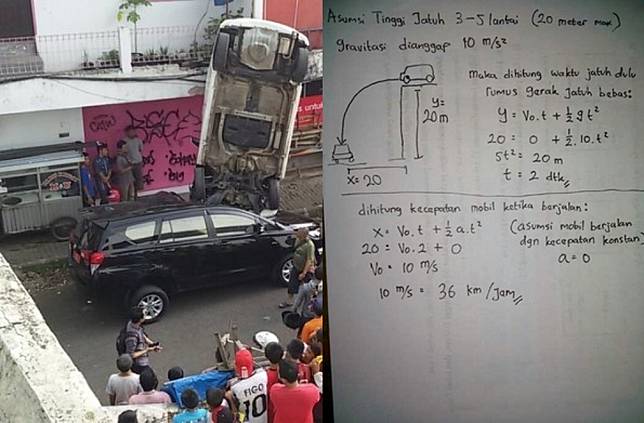 FIGO
10
Asumsi Tinggi Jatuh 3-5 lantai (20 meter max)
gravitasi dianggap 10 m/s²
maka dihitung waktu jatuh dulu
rumus gerak jatuh bebas:
y = Vo.t + ½ g t²
20 = 0 + ½.10.t²
5t² = 20 m
t = 2 dtk
y=
20 m
x = 20
dihitung kecepatan mobil ketika berjalan:
x = Vo.t + ½ a.t²
20 = Vo.2 + 0
Vo = 10 m/s
10 m/s = 36 km/jam
(asumsi mobil berjalan
dgn kecepatan konstan)
a = 0